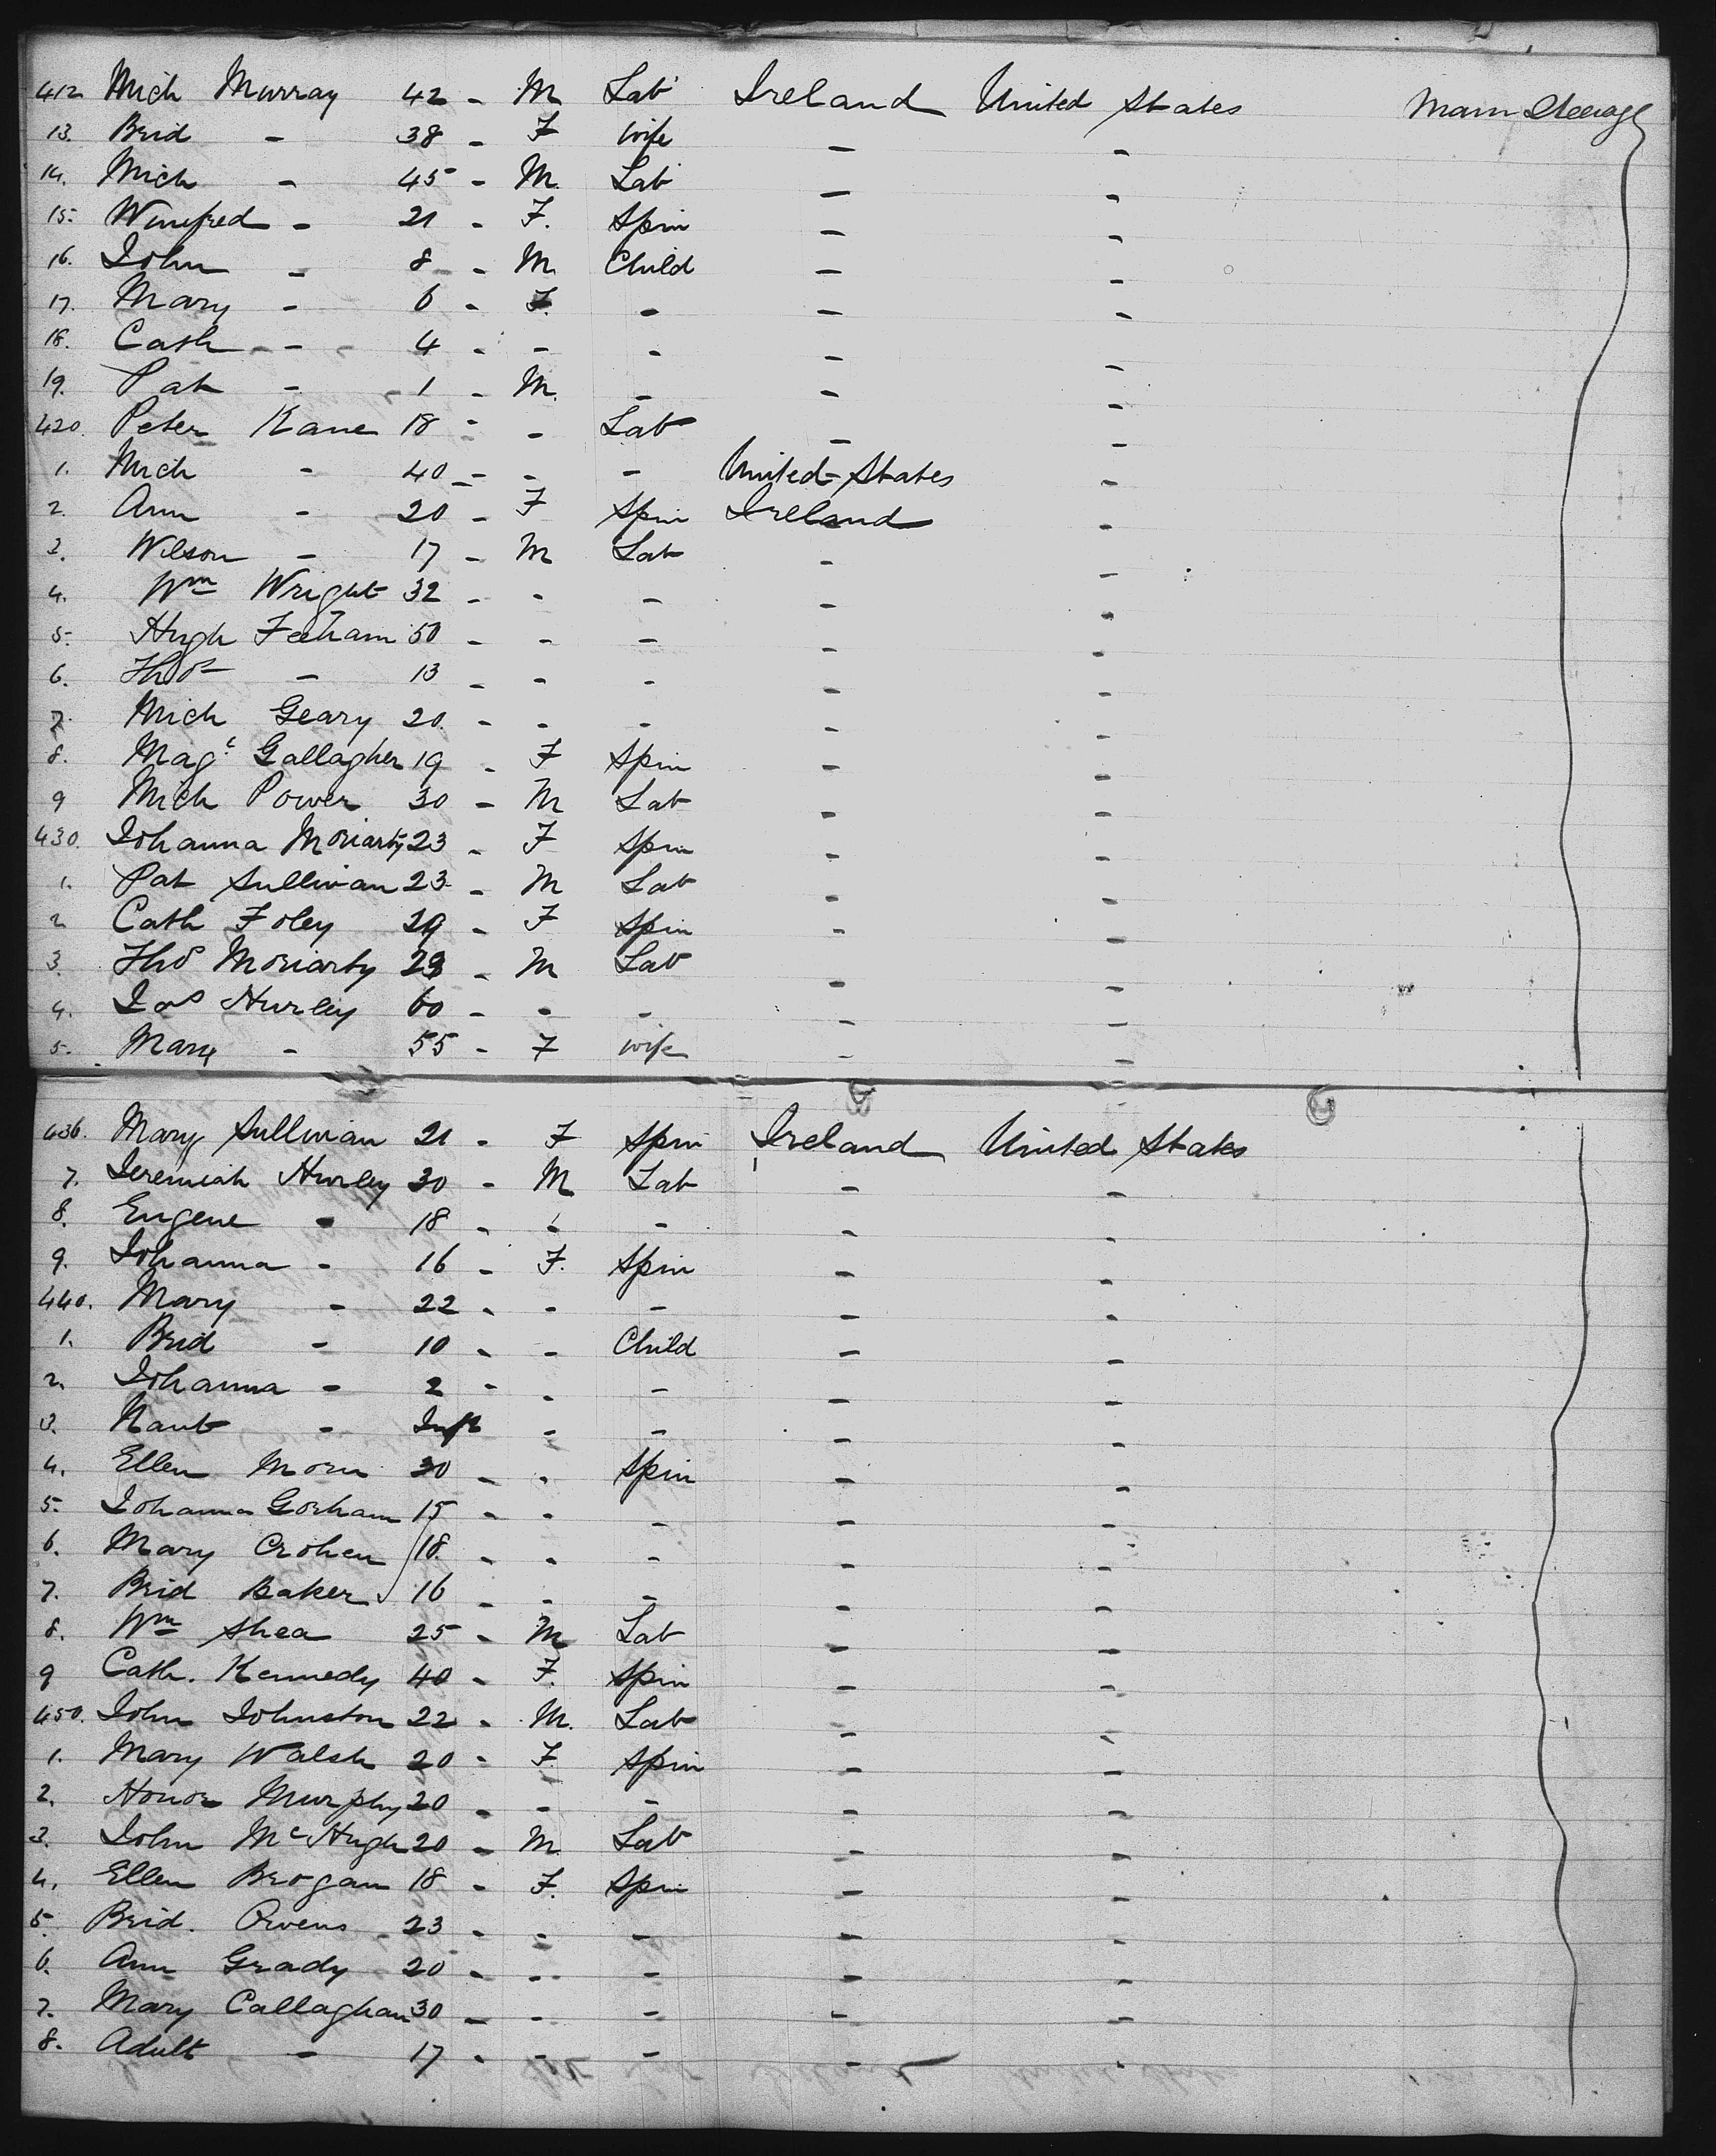 412 Mich Murray 42 - M Lab Ireland United States Main Steerage
13. Brid - 38 - F wife - -
14. Mich - 45 - M. Lab - -
15. Winefred - 21 - F. Spin - -
16. John - 8 - M. Child - -
17. Mary - 6 - F. - - -
18. Cath - 4 - - - - -
19. Pat - 1 - M. - - -
420. Peter Kane 18 - - Lab - -
1. Mich - 40 - - - United States -
2. Ann - 20 - F Spin Ireland -
3. Wilson - 17 - M Lab - -
4. Wm Wright 32 - - - - -
5. Hugh Feeham 50 - - - - -
6. Thos - 13 - - - - -
7. Mich Geary 20. - - - - -
8. Magt Gallagher 19 - F Spin - -
9 Mich Power 30 - M Lab - -
430. Johanna Moriarty 23 - F Spin - -
1. Pat Sullivan 23 - M Lab - -
2 Cath Foley 29 - F Spin - -
3. Tho Moriarty 23 - M Lab - -
4. Jas Hurley 60 - - - - -
5. Mary - 55 - F wife - -
436. Mary Sullivan 21 - F Spin Ireland United States
7. Jeremiah Hurley 30 - M Lab - -
8. Eugene - 18 - - - - -
9. Johanna - 16 - F. Spin - -
440. Mary - 22 - - - - -
1. Brid - 10 - - Child - -
2. Johanna - 2 - - - - -
3. - Inft - - - -
4. Ellen Morn 30 - - Spin - -
5. Johanna Gorham 15 - - - - -
6. Mary Crohen 18. - - - - -
7. Brid Baker 16 - - - - -
8. Wm Shea 25 - M Lab - -
9 Cath. Kennedy 40 - F. Spin - -
450. John Johnston 22 - M. Lab - -
1. Mary Walsh 20 - F. Spin - -
2. Honor Murphy 20 - - - - -
3. John McHugh 20 - M. Lab - -
4. Ellen Brogan 18 - F. Spin - -
5. Brid. Owens 23 - - - - -
6. Ann Grady 20 - - - - -
7. Mary Callaghan 30 - - - - -
8. Adult - 17 - - - - -